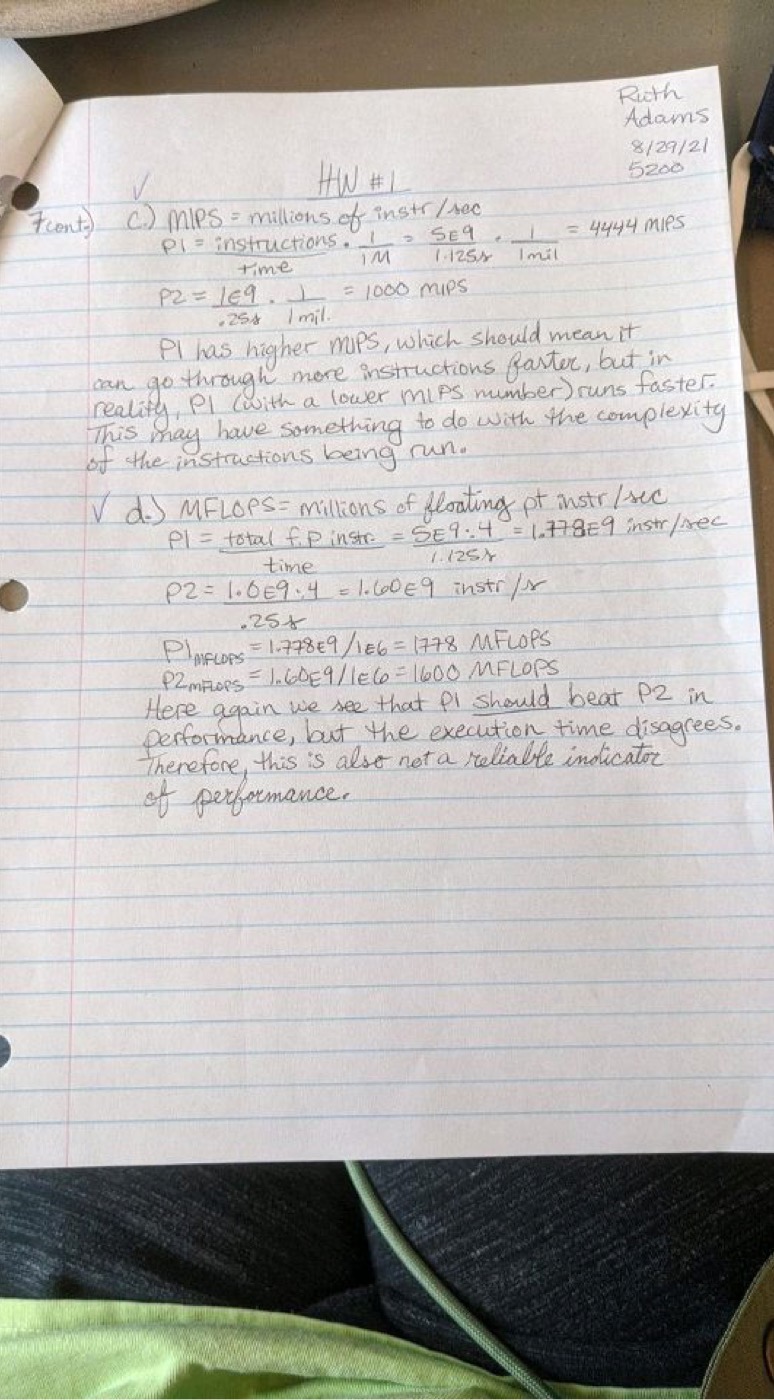 Ruth
Adams
8/29/21
5200
HW #1
7cont.) c.) MIPS = millions of instr/sec
P1 = instructions/time · 1/1M = 5E9/1.125s · 1/1mil = 4444 MIPS
P2 = 1E9/.25s · 1/1mil. = 1000 MIPS
P1 has higher MIPS, which should mean it
can go through more instructions faster, but in
reality, P1 (with a lower MIPS number) runs faster.
This may have something to do with the complexity
of the instructions being run.
√ d.) MFLOPS = millions of floating pt instr/sec
P1 = total f.p instr./time = 5E9·.4/1.125s = 1.778E9 instr/sec
P2 = 1.0E9·.4/.25s = 1.60E9 instr/s
P1MFLOPS = 1.778E9/1E6 = 1778 MFLOPS
P2MFLOPS = 1.60E9/1E6 = 1600 MFLOPS
Here again we see that P1 should beat P2 in
performance, but the execution time disagrees.
Therefore, this is also not a reliable indicator
of performance.